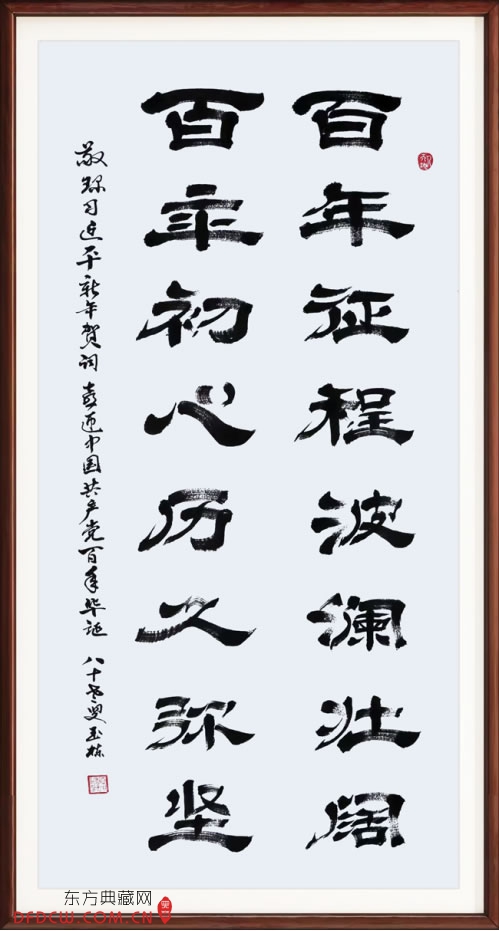 百年征程波澜壮阔
百年初心历久弥坚
敬录习近平新年贺词 喜迎中国共产党百年华诞 八十老叟玉栋
东方典藏网
DFDCW.COM.CN